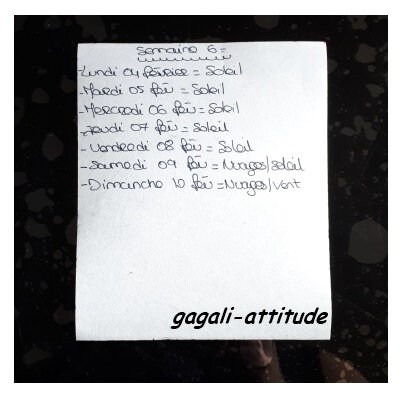 Semaine 6 =
-Lundi 04 février = Soleil
-Mardi 05 fév = Soleil
-Mercredi 06 fév = Soleil
-Jeudi 07 fév = Soleil
-Vendredi 08 fév = Soleil
-Samedi 09 fév = Nuages/soleil
-Dimanche 10 fév = Nuages/Vent
gagali-attitude